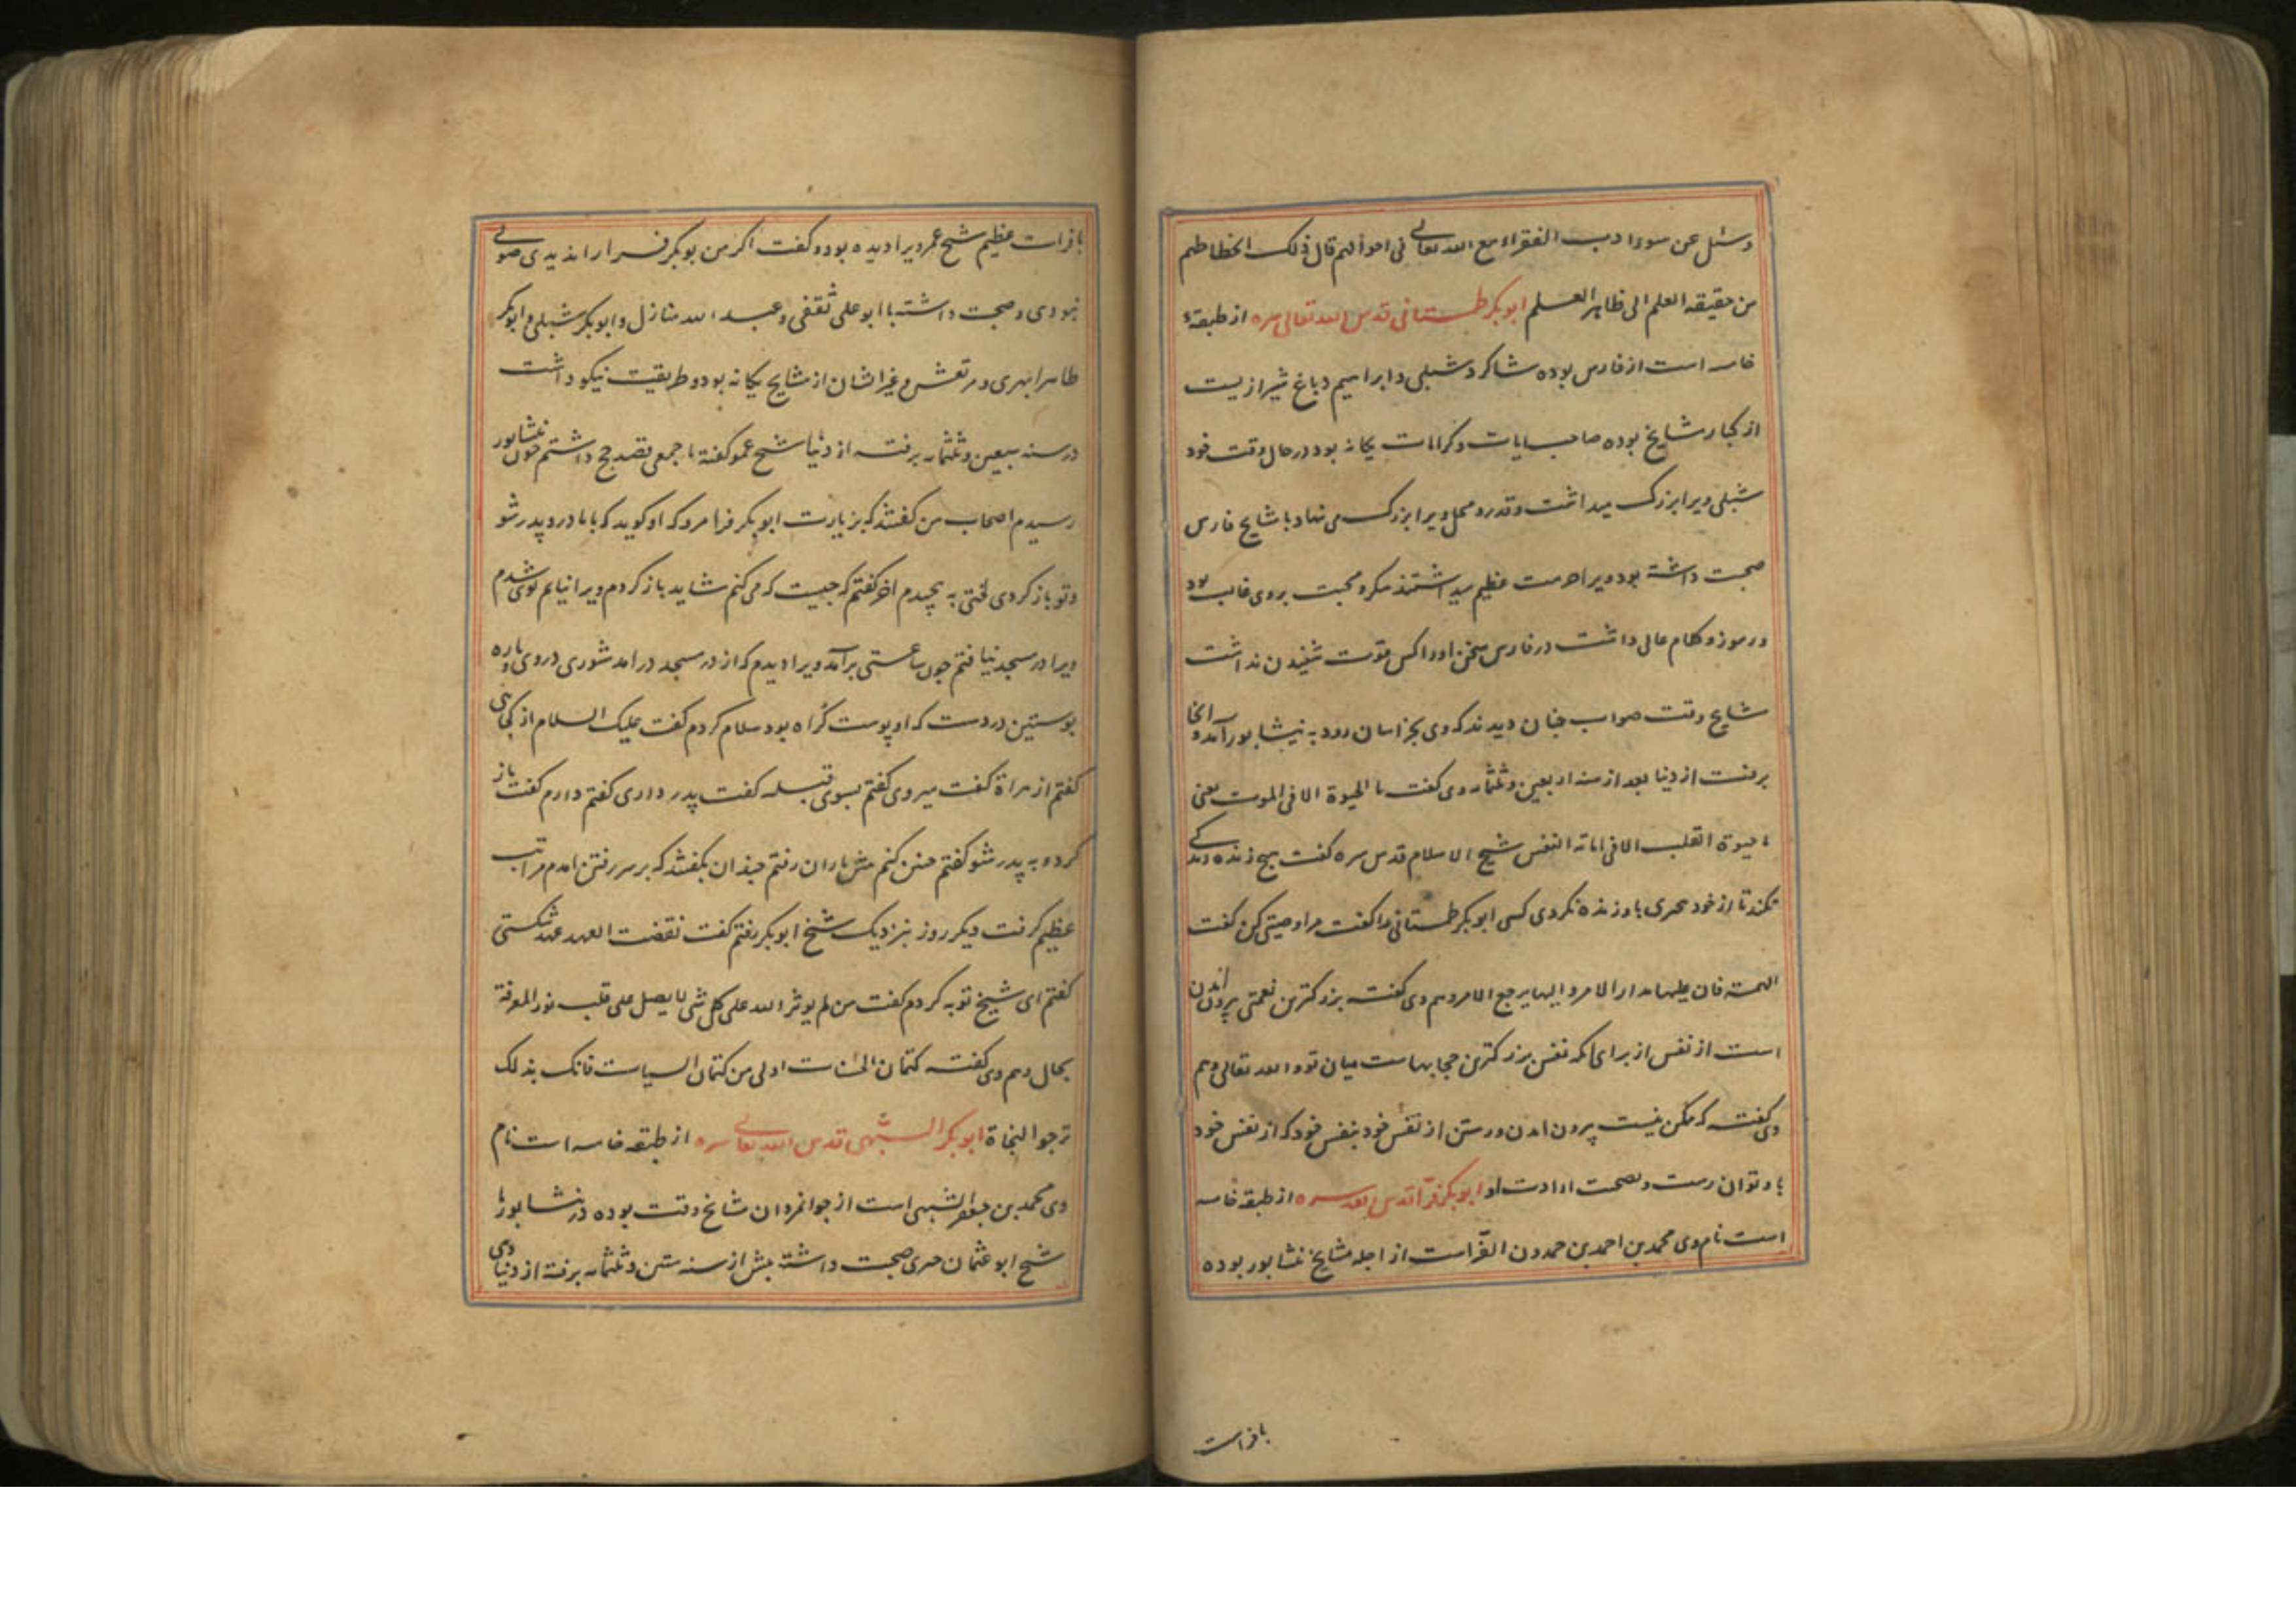 وسئل عن سوء ادب الفقراء مع الله تعالی فی احوالهم قال ذلک انحطاطهم
من حقیقه العلم الی ظاهر العلم ابوبکر طمستانی قدس الله تعالی سره از طبقهٔ
خامسه است از فارس بوده شاکرد شبلی و ابراهیم دباغ شیرازیست
از کبار مشایخ بوده صاحب ایات و کرامات یکانه بود در حال وقت خود
شبلی ویرا بزرک میداشت وقدر و محل ویرا بزرک می نهاد با مشایخ فارس
صحبت داشته بود ویرا حرمت عظیم میداشتند سکر و محبت بر وی غالب بود
و رموز و کلام عالی داشت در فارس سخن او را کس قوت شنیدن نداشت
مشایخ وقت صواب جنان دیدند که وی بخراسان رود به نیشابور آمد و انجا
برفت از دنیا بعد از سنه اربعین وثلثمایه وی کفت ما الحیوة الا فی الموت یعنی
ما حیوة القلب الا فی اماتة النفس شیخ الاسلام قدس سره کفت هیچ زنده دعوی
نکند تا از خود بمیری باو زنده نکردی کسی ابوبکر طمستانی را کفت مرا وصیتی کن کفت
الهمة فان علیها مدار الامر و الیها یرجع الامر وهم وی کفته بزرکترین نعمتی بیرون امدن
است از نفس از برای انکه نفس بزرکترین حجابهاست میان تو و الله تعالی وهم
وی کفته که ممکن نیست بیرون امدن و رستن از نفس خود بنفس خود که از نفس خود
باو توان رست و بصحت ارادت او ابوبکر فرّا قدس الله سره از طبقه خامسه
است نام وی محمد بن احمد بن حمدون الفرّا است از اجله مشایخ نشابور بوده
بافراست
بافراست عظیم شیخ عمو ویرا دیده بود و کفت اکر من بوبکر فرا را ندیدی صوفی
نبودی و صحبت داشته با ابو علی ثقفی و عبد الله منازل و ابوبکر شبلی و ابوبکر
طاهر ابهری و مرتعش و غیر ایشان از مشایخ یکانه بود و طریقیت نیکو داشت
در سنه سبعین وثلثمایه برفته از دنیا شیخ عمو کفته با جمعی قصد حج داشتم چون نشابور
رسیدم اصحاب من کفتند که بزیارت ابوبکر فرا مرو که او کوید که با مادر و پدر شو
وتو باز کردی لختی به پچیدم اخر کفتم که جیست که می کنم شاید باز کردم ویرا نیابم توی شدم
ویرا در مسجد نیافتم جون ساعتی برآمد ویرا دیدم که از در مسجد درامد شوری در وی و پاره
بوستین در دست که او پوست کراه بود سلام کردم کفت علیک السلام از کجائی
کفتم از هراة کفت میروی کفتم بسوی قبله کفت پدر داری کفتم دارم کفت باز
کرد و به پدر شو کفتم جنین کنم پیش یاران رفتم جندان بکفتند که بر سر رفتن امدم مرا تب
عظیم کرفت دیکر روز بنزدیک شیخ ابوبکر رفتم کفت نقضت العهد عهد شکستی
کفتم ای شیخ توبه کردم کفت من لم یوثر الله علی کل شی لا یصل علی قلبه نور المعرفة
بحال وهم وی کفته کتمان الحسنات اولی من کتمان السیات فانک بذلک
ترجوا النجاة ابوبکر الشبهی قدس الله تعالی سره از طبقه خامسه است نام
وی محمد بن جعفر الشبهی است از جوانمردان مشایخ وقت بوده در نشابور با
شیخ ابو عثمان حیری صحبت داشته پیش از سنه ستین وثلثمایه برفته از دنیا وی